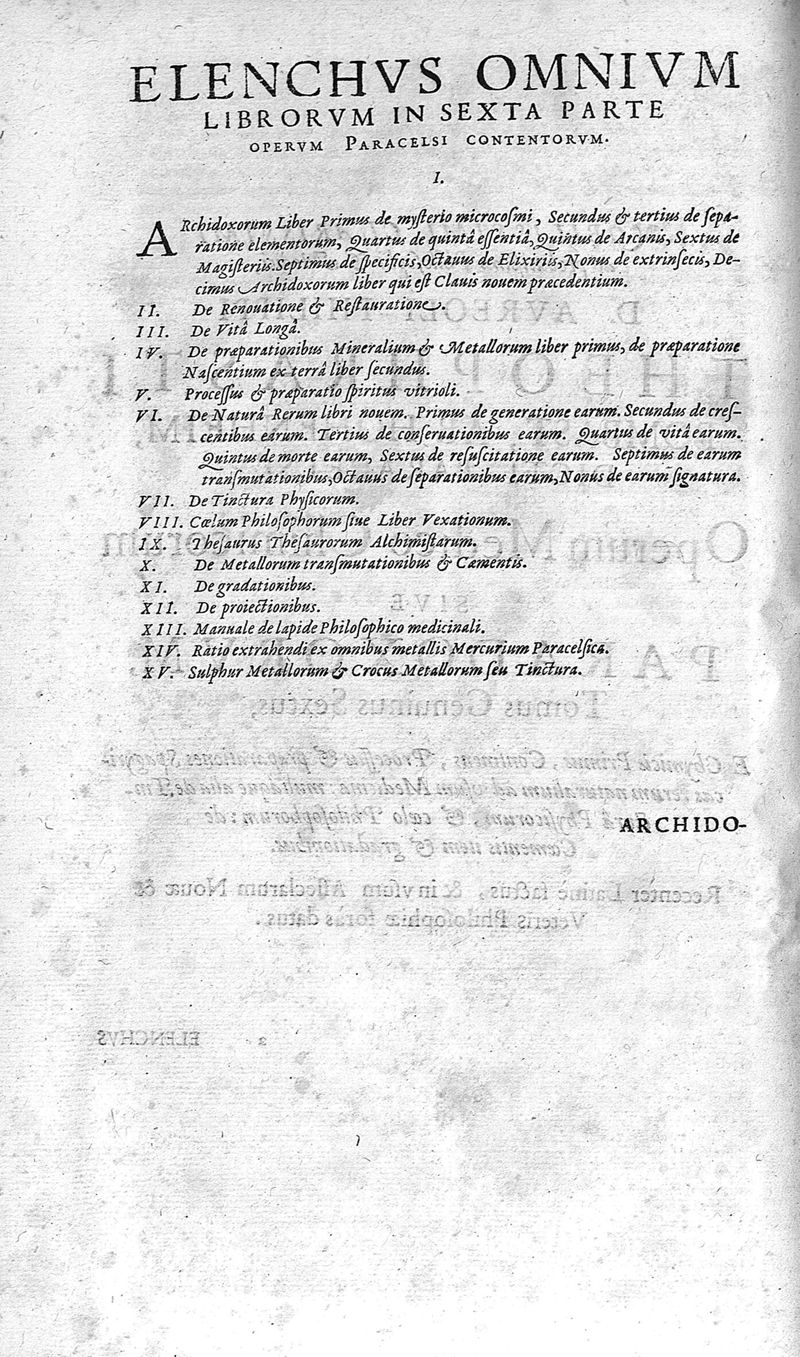 ELENCHVS OMNIVM
LIBRORVM IN SEXTA PARTE
OPERVM PARACELSI CONTENTORVM.
I.
ARchidoxorum Liber Primus de myſterio microcoſmi, Secundus & tertius de ſepa-
ratione elementorum, Quartus de quintâ eſſentiâ, Quintus de Arcanis, Sextus de
Magiſteriis. Septimus de ſpecificis, Octauus de Elixiriis, Nonus de extrinſecis, De-
cimus Archidoxorum liber qui eſt Clauis nouem præcedentium.
II. De Renouatione & Reſtauratione.
III. De Vitâ Longâ.
IV. De præparationibus Mineralium & Metallorum liber primus, de præparatione
Naſcentium ex terrâ liber ſecundus.
V. Proceſſus & præparatio ſpiritus vitrioli.
VI. De Naturâ Rerum libri nouem. Primus de generatione earum. Secundus de creſ-
centibus earum. Tertius de conſeruationibus earum. Quartus de vitâ earum.
Quintus de morte earum, Sextus de reſuſcitatione earum. Septimus de earum
tranſmutationibus, Octauus de ſeparationibus earum, Nonus de earum ſignatura.
VII. De Tinctura Phyſicorum.
VIII. Cœlum Philoſophorum ſiue Liber Vexationum.
IX. Theſaurus Theſaurorum Alchimiſtarum.
X. De Metallorum tranſmutationibus & Cæmentis.
XI. De gradationibus.
XII. De proiectionibus.
XIII. Manuale de lapide Philoſophico medicinali.
XIV. Ratio extrahendi ex omnibus metallis Mercurium Paracelſica.
XV. Sulphur Metallorum & Crocus Metallorum ſeu Tinctura.
ARCHIDO-